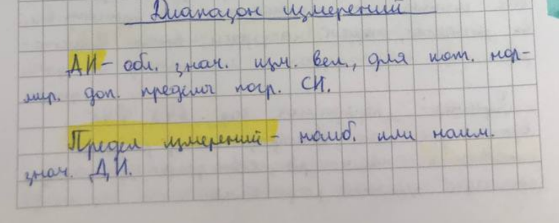 Диапазон измерений
ДИ - обл. знач. изм. вел., для кот. нор-
мир. доп. пределы погр. СИ.
Предел измерений - наиб. или наим.
знач. ДИ.